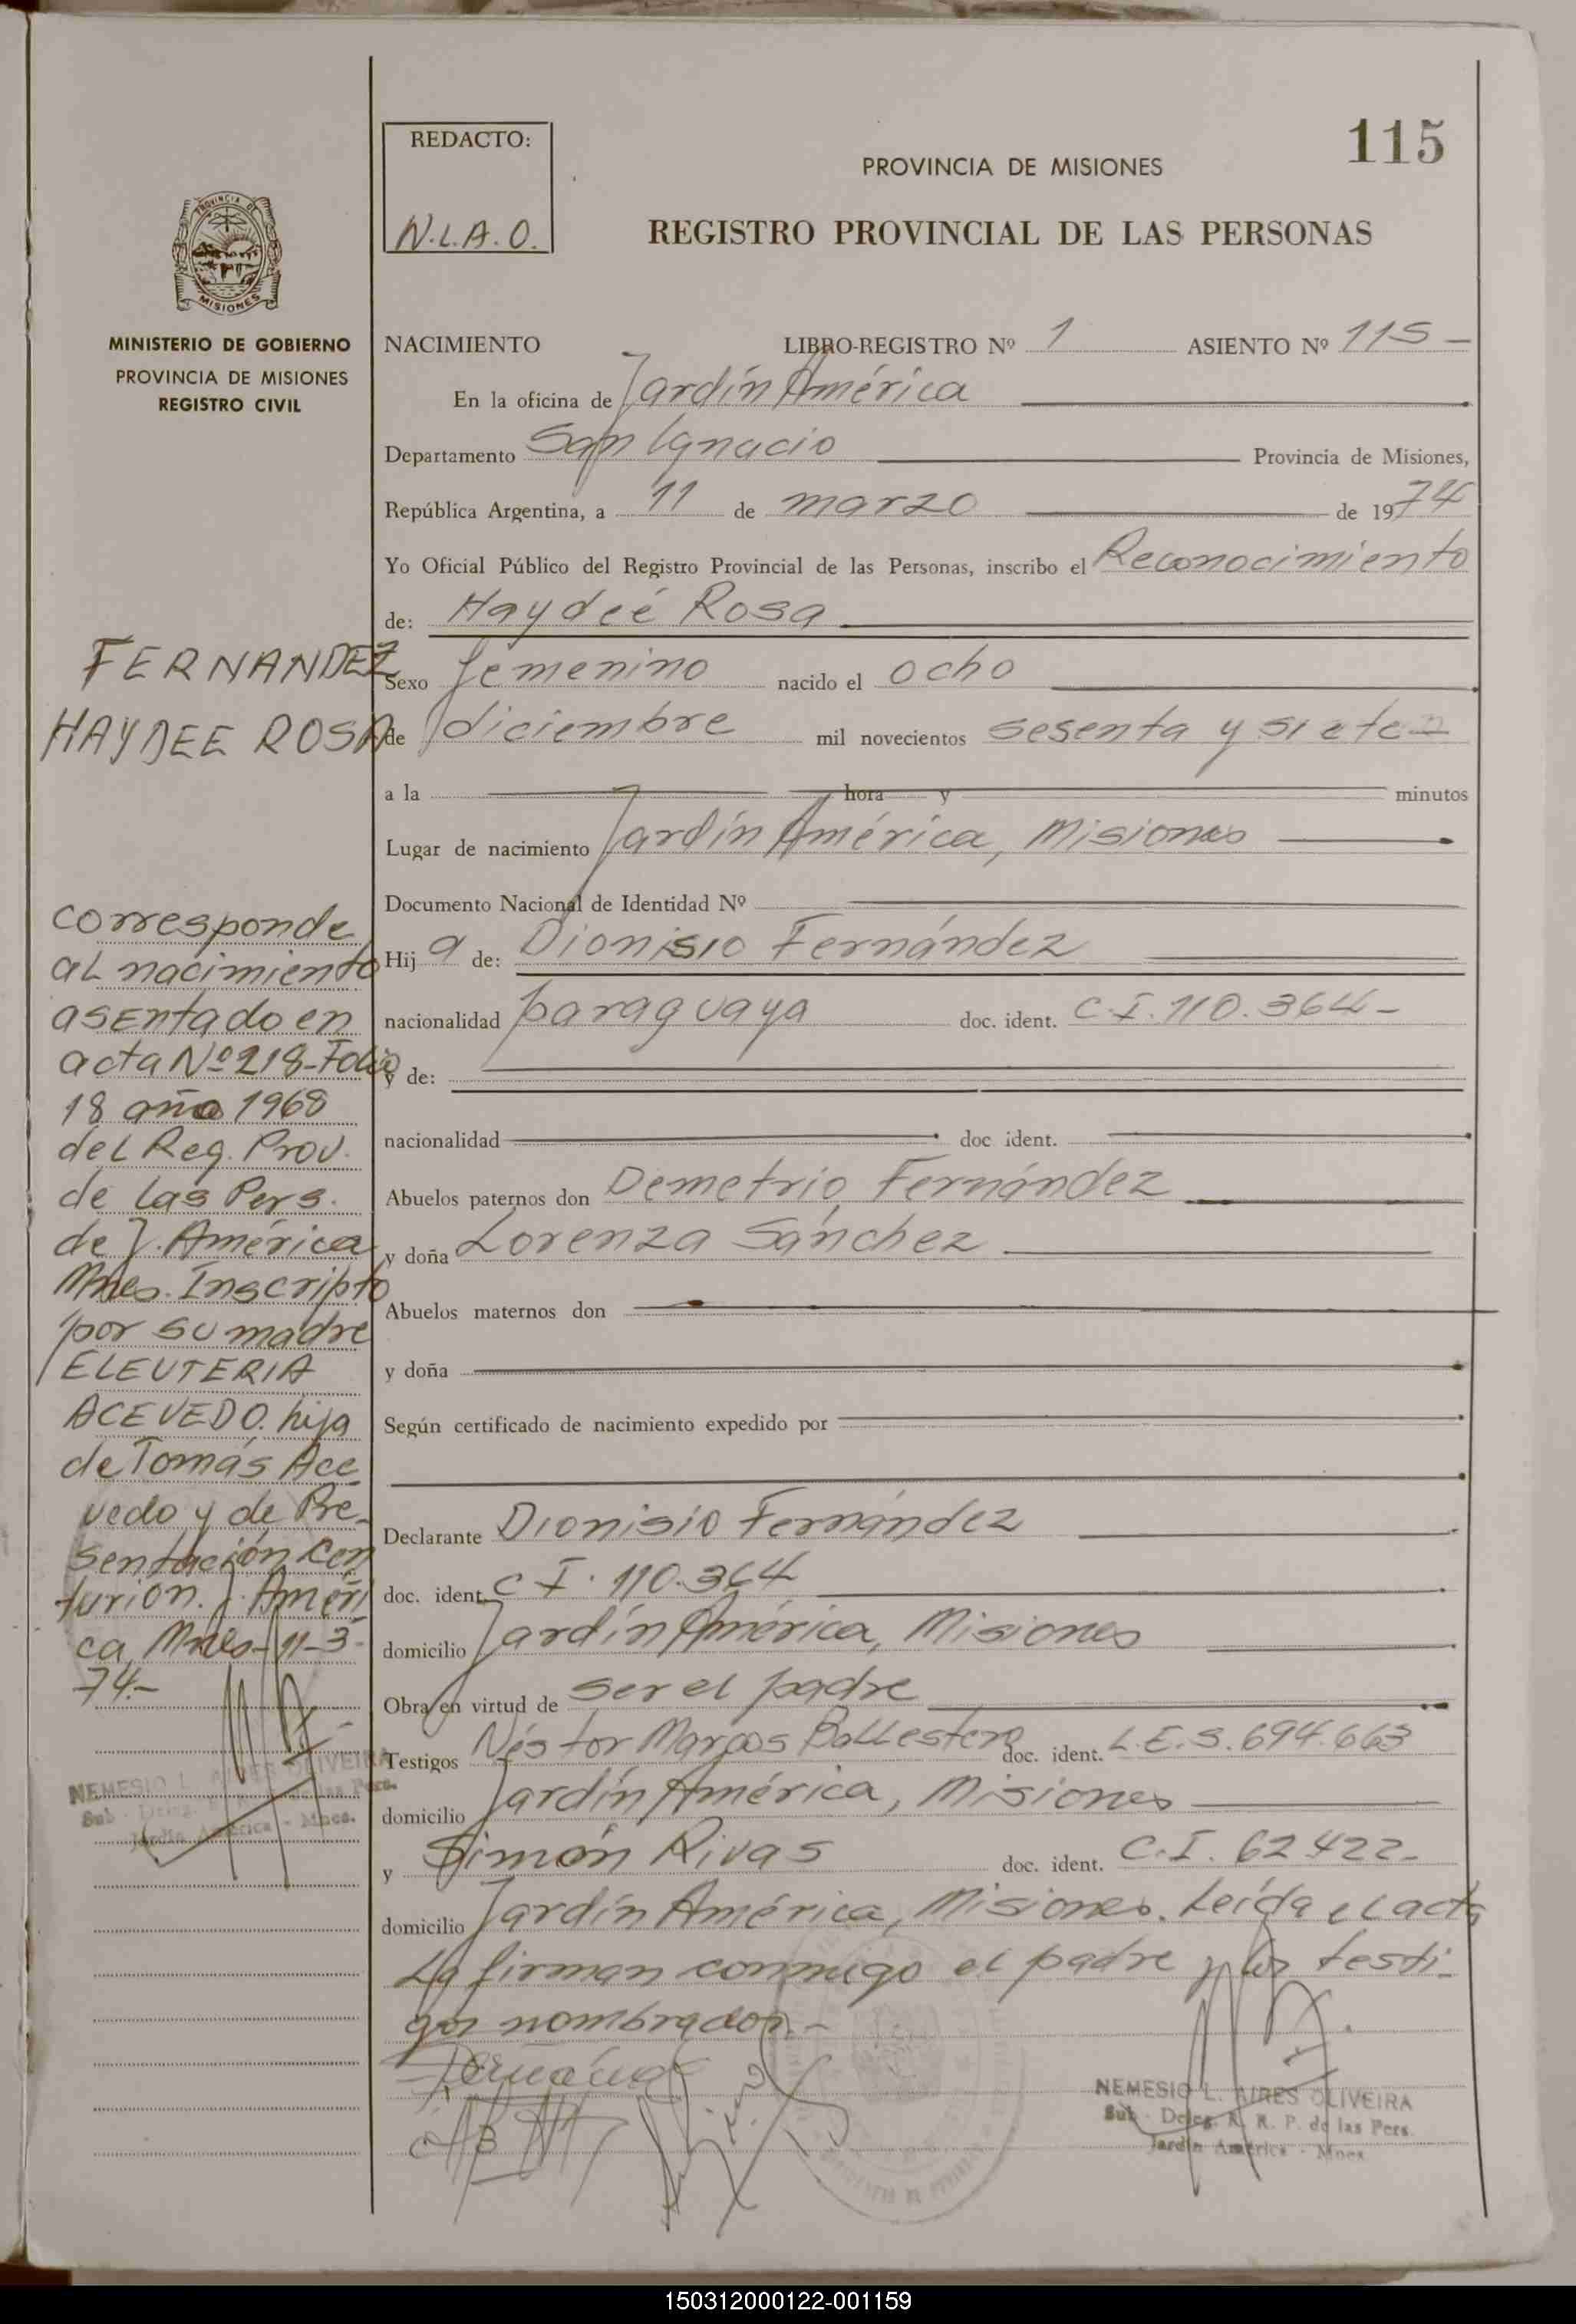 115
REDACTO:
N.L.A.O.
PROVINCIA DE MISIONES
REGISTRO PROVINCIAL DE LAS PERSONAS
PROVINCIA DE
MISIONES
MINISTERIO DE GOBIERNO
PROVINCIA DE MISIONES
REGISTRO CIVIL
NACIMIENTO LIBRO-REGISTRO Nº 1 ASIENTO Nº 115-
En la oficina de Jardín América
Departamento San Ignacio Provincia de Misiones,
República Argentina, a 11 de marzo de 1974
Yo Oficial Público del Registro Provincial de las Personas, inscribo el Reconocimiento
de: Haydeé Rosa
Sexo femenino nacido el ocho
de diciembre mil novecientos sesenta y siete
a la hora y minutos
Lugar de nacimiento Jardín América, Misiones
Documento Nacional de Identidad Nº
Hija de: Dionisio Fernández
nacionalidad paraguaya doc. ident. C.I. 110.364-
y de:
nacionalidad doc ident.
Abuelos paternos don Demetrio Fernández
y doña Lorenza Sánchez
Abuelos maternos don
y doña
Según certificado de nacimiento expedido por
Declarante Dionisio Fernández
doc. ident. C I. 110.364
domicilio Jardín América, Misiones
Obra en virtud de ser el padre
Testigos Néstor Marcos Ballestero doc. ident. L.E. 3.694.663
domicilio Jardín América, Misiones
y Simón Rivas doc. ident. C.I. 62422-
domicilio Jardín América, Misiones. Leída el acta
La firman conmigo el padre y los testi-
gos nombrados.-
NEMESIO L. AIRES OLIVEIRA
Sub - Deleg. R. R. P. de las Pers.
Jardín América - Mnes
FERNANDEZ
HAYDEE ROSA
corresponde
al nacimiento
asentado en
acta Nº 218-Folio
18 año 1968
del Reg. Prov.
de las Pers.
de J. América
Mnes. Inscripto
por su madre
ELEUTERIA
ACEVEDO. hija
de Tomás Ace
vedo y de Pre-
sentación Cen
turión. J. Améri
ca, Mnes-11-3-
74.-
NEMESIO L. AIRES OLIVEIRA
Sub - Deleg. de las Pers.
Jardín América - Mnes.
150312000122-001159